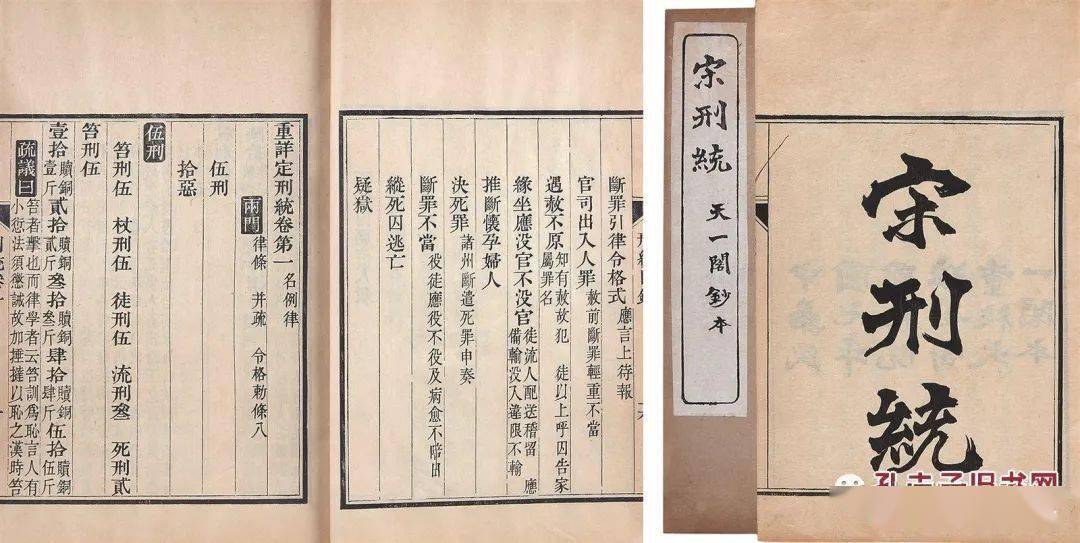 重詳定刑統卷第一 名例律
兩門 律條 并疏 令格勅條八
伍刑
拾惡
伍刑
笞刑伍 杖刑伍 徒刑伍 流刑叁 死刑貳
笞刑伍
壹拾贖銅壹斤貳拾贖銅貳斤叁拾贖銅叁斤肆拾贖銅肆斤伍拾贖銅伍斤
疏議曰 笞者擊也而律學者云笞訓為恥言人有小愆法須懲誡故加捶撻以恥之漢時笞
斷罪引律令格式 應言上待報
官司出入人罪 赦前斷罪輕重不當
遇赦不原 知有赦故犯 徒以上呼囚告家屬罪名
緣坐應没官不没官 徒流人配送稽留 應備輸没入違限不輸
推斷懷孕婦人
決死罪 諸州斷遣死罪申奏
斷罪不當 役徒應役不役及病愈不陪日
縱死囚逃亡
疑獄
宋刑統 天一閣鈔本
宋刑統
孔夫子旧书网